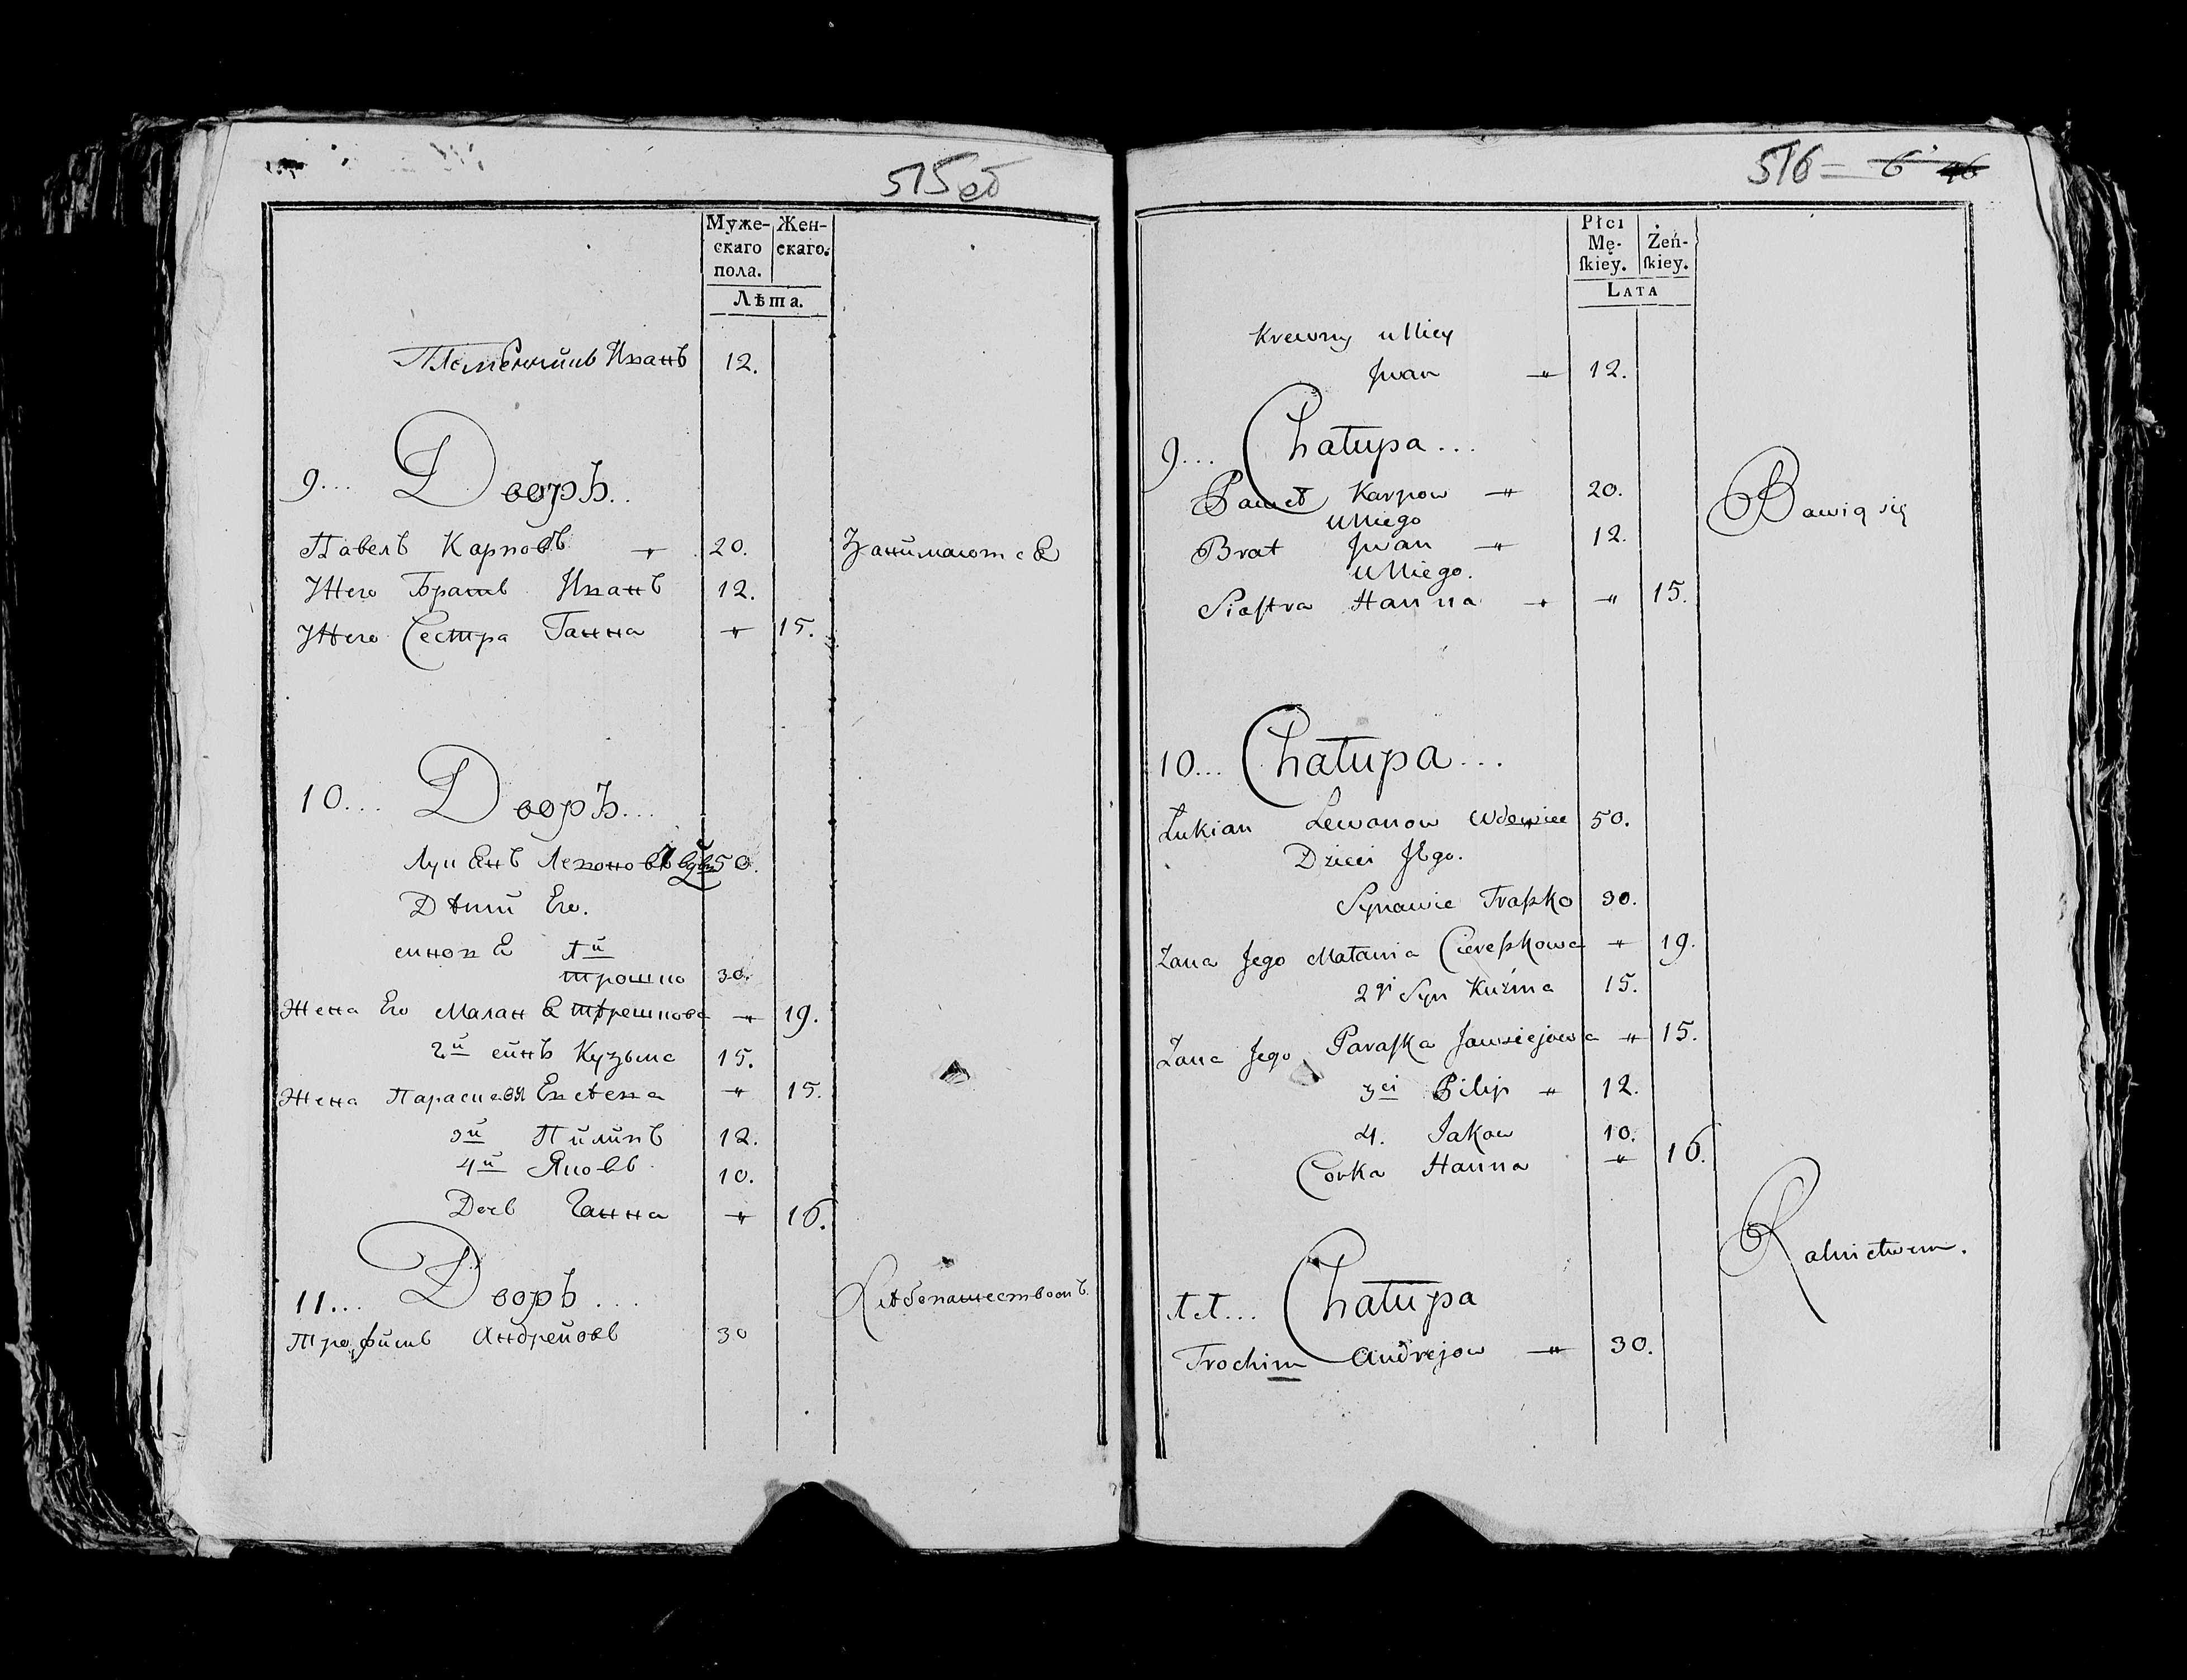 515 об
Муже-
скаго
пола.
Жен-
скаго.
Лѣта.
Племенникъ Иванъ 12.
9... Дворъ..
Павелъ Карповъ 〃 20. Занимаютсѧ
У Него Братъ Иванъ 12.
У Него Сестра Ганна 〃 15.
10... Дворъ...
Лукѧнъ Левоновъ 50.
Дѣти Его.
синовѧ 1й
Трошко 30.
Жена Его Маланѧ 〃 19.
2й синъ Кузьма 15.
Жена Параскавя 〃 15.
3й Пилипъ 12.
4й Яковъ 10.
Дочь Ганна 〃 16.
11... Дворъ... Хлѣбопашествомъ.
Трофимъ Андреиовъ 30
516 = 6 46
Płci
Mę-
ſkiey.
Żeń-
ſkiey.
Lata
Krewny u Niey
Jwan 〃 12.
9... Chałupa...
Paweł Karpow 〃 20. Bawią się
U Niego
Brat Jwan 〃 12.
U Niego.
Siaſtra Hanna 〃 〃 15.
10... Chałupa...
Łukian Lewonow Wdowiec 50.
Dzieci Jego.
Synowie Traſzko 30.
Żona Jego Małania 〃 19.
2gi Syn Kuźma 15.
Żona Jego Paraſka Jawsiejowa 〃 15.
3ci Pilip 〃 12.
4. Jakow 10.
Corka Hanna 〃 16.
Rolnictwem.
11... Chałupa
Trochim Andrejow 〃 30.